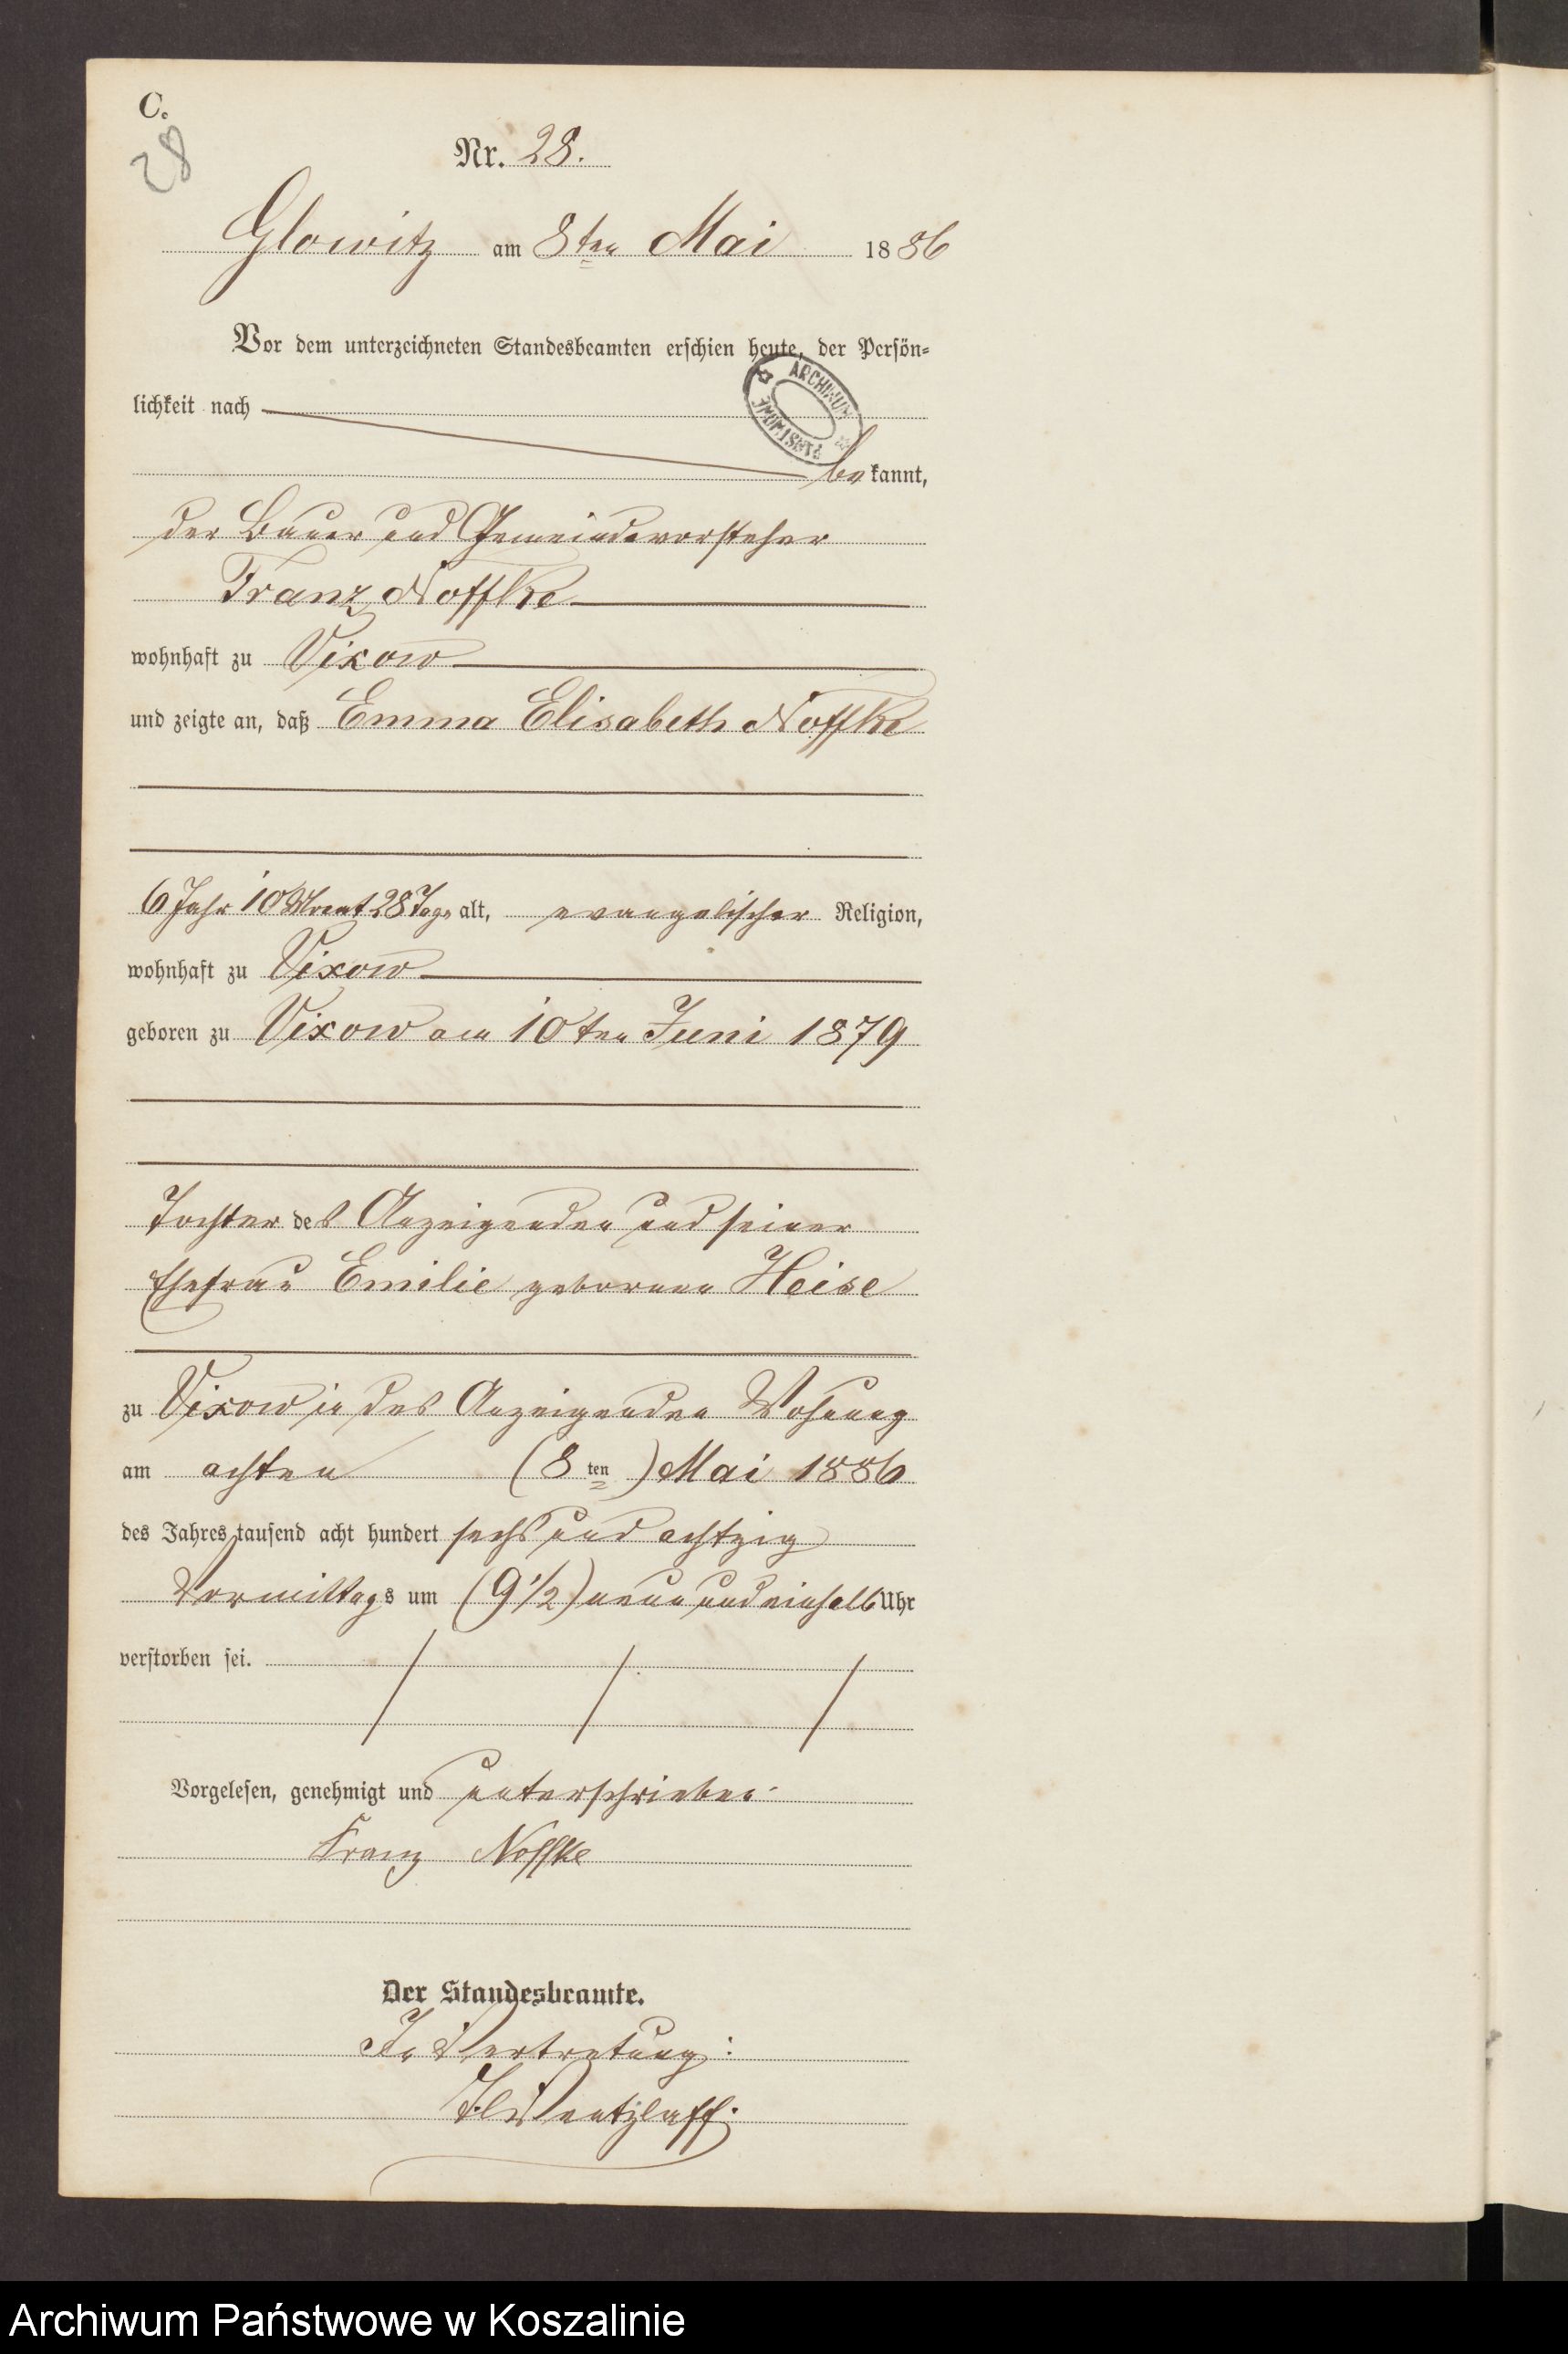 C.
28
Nr. 28.
Glowitz am 8ten Mai 1886
Vor dem unterzeichneten Standesbeamten erschien heute, der Persön=
lichkeit nach
ARCHIWUM PAŃSTWOWE
bekannt,
der Bauer und Gemeindevorsteher
Franz Noffke
wohnhaft zu Vixow
und zeigte an, daß Emma Elisabeth Noffke
6 Jahr 10 Monat 28 Tage alt, evangelischer Religion,
wohnhaft zu Vixow
geboren zu Vixow am 10ten Juni 1879
Tochter des Anzeigenden und seiner
Ehefrau Emilie geborenen Heise
zu Vixow in des Anzeigenden Wohnung
am achten (8ten) Mai 1886
des Jahres tausend acht hundert sechs und achtzig
Vormittags um (9 1/2) neun und einhalb Uhr
verstorben sei.
Vorgelesen, genehmigt und unterschrieben.
Franz Noffke
Der Standesbeamte.
In Vertretung:
Wentzlaff.
Archiwum Państwowe w Koszalinie